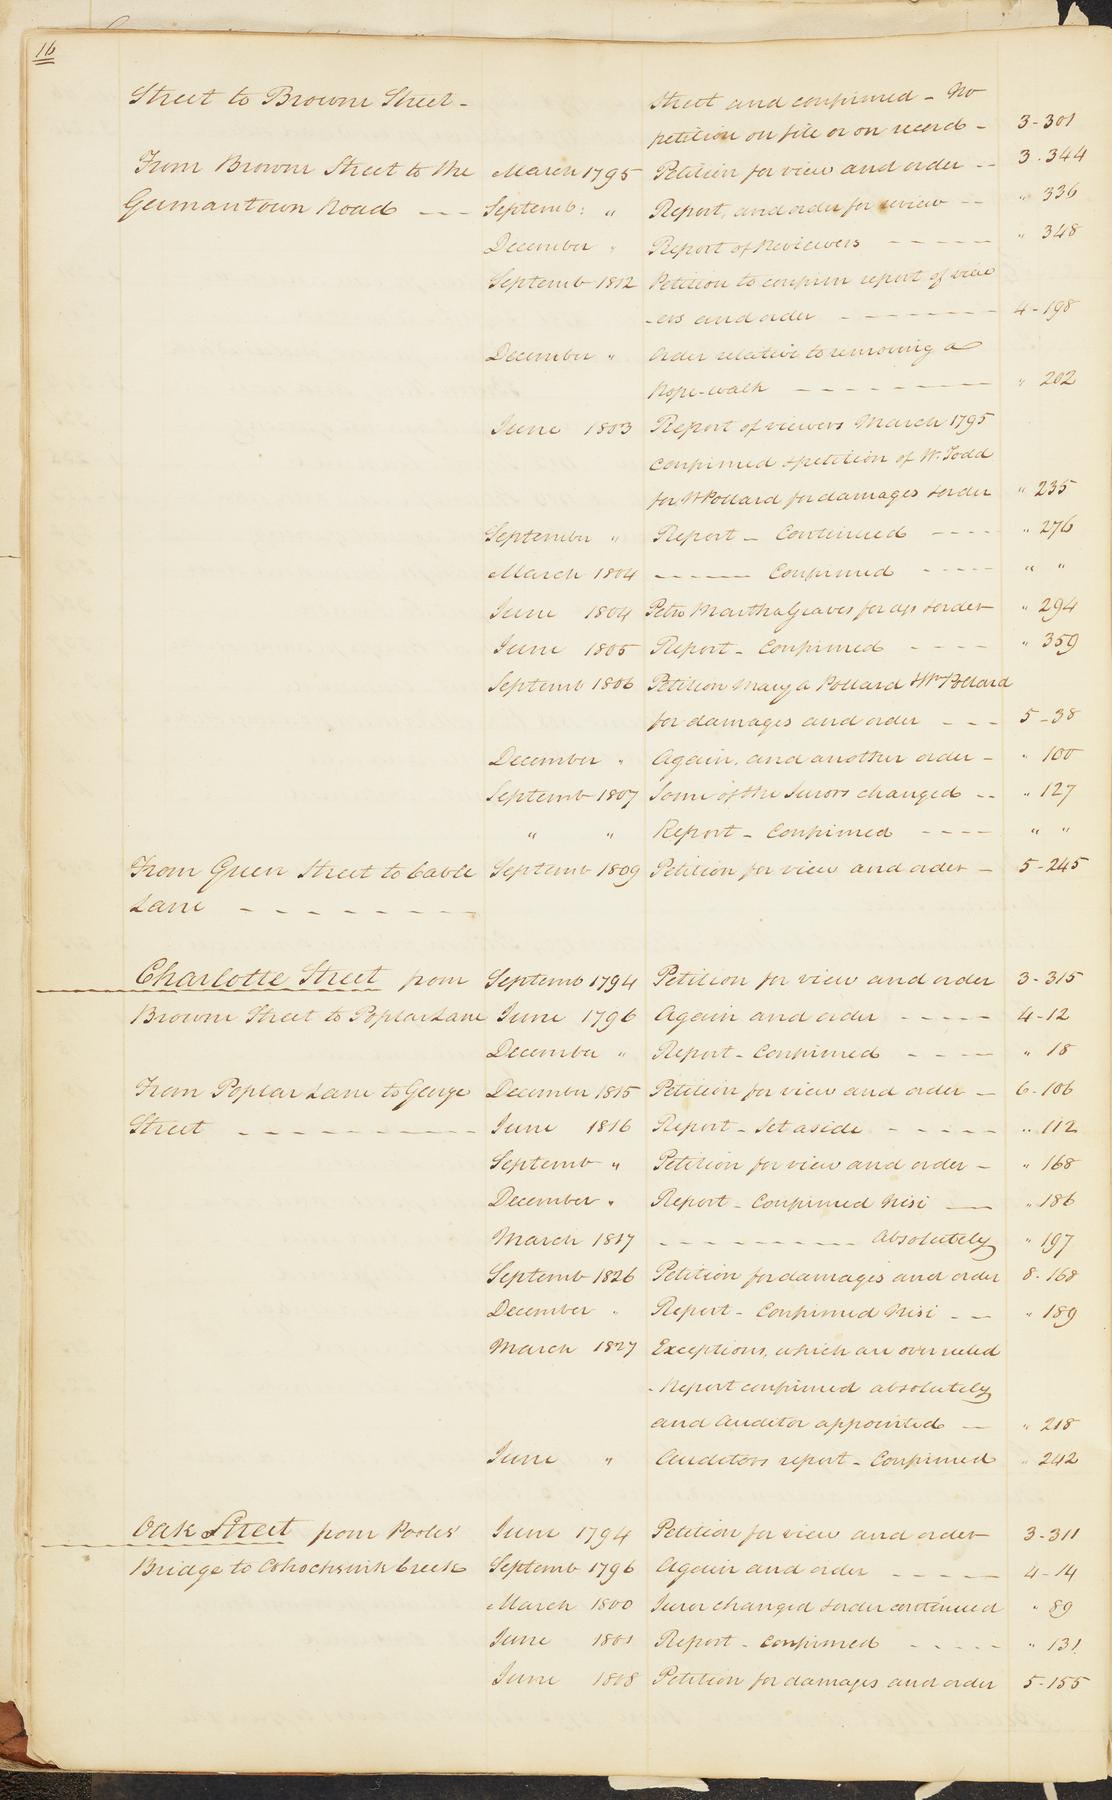 16
Street to Brown Street - Street and confirmed - No
petition on file or on record - 3-301
From Brown Street to the March 1795 Petition for view and order -- 3.344
Germantown Road --- Septemb: " Report, and order for review -- " 336
December " Report of Reviewers ----- " 348
Septemb 1802 Petition to confirm report of view
-ers and order ------- 4-198
December " Order relative to removing a
Rope-walk -------- " 202
June 1803 Report of viewers March 1795
confirmed & petition of Wm Todd
for W Pollard for damages & order " 235
September " Report - Continued ---- " 276
March 1804 ----- Confirmed ---- " "
June 1804 Petn Martha Graves for & order " 294
June 1805 Report - Confirmed ---- " 359
Septemb 1806 Petition Mary a Pollard & Wm Pollard
for damages and order --- 5-38
December " Again, and another order - " 100
Septemb 1807 Some of the Jurors changed -- " 127
" " Report - Confirmed ---- " "
From Green Street to Cable Septemb 1809 Petition for view and order - 5-245
Lane --------
Charlotte Street from Septemb 1794 Petition for view and order 3-315
Brown Street to Poplar Lane June 1796 Again and order ----- 4-12
December " Report - Confirmed ---- " 18
From Poplar Lane to George December 1815 Petition for view and order - 6-106
Street --------- June 1816 Report - Set aside ----- " 112
Septemb " Petition for view and order - " 168
December " Report - Confirmed Nisi -- " 186
March 1817 --------- Absolutely " 197
Septemb 1826 Petition for damages and order 8-168
December " Report - Confirmed Nisi -- " 189
March 1827 Exceptions, which are overruled
- Report confirmed absolutely
and Auditor appointed - " 218
June " Auditors report - Confirmed " 242
Oak Street from Pooles' June 1794 Petition for view and order 3-311
Bridge to Cohocksink Creek Septemb 1796 Again and order ----- 4-14
March 1800 Juror changed & order continued " 89
June 1801 Report - Confirmed ----- " 131
June 1808 Petition for damages and order 5-155